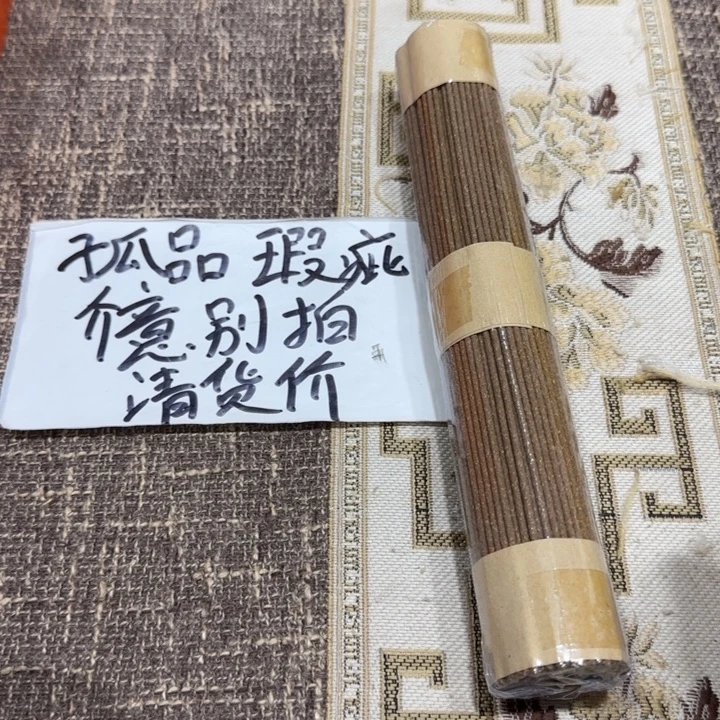 孤品 瑕疵
介意别拍
清货价